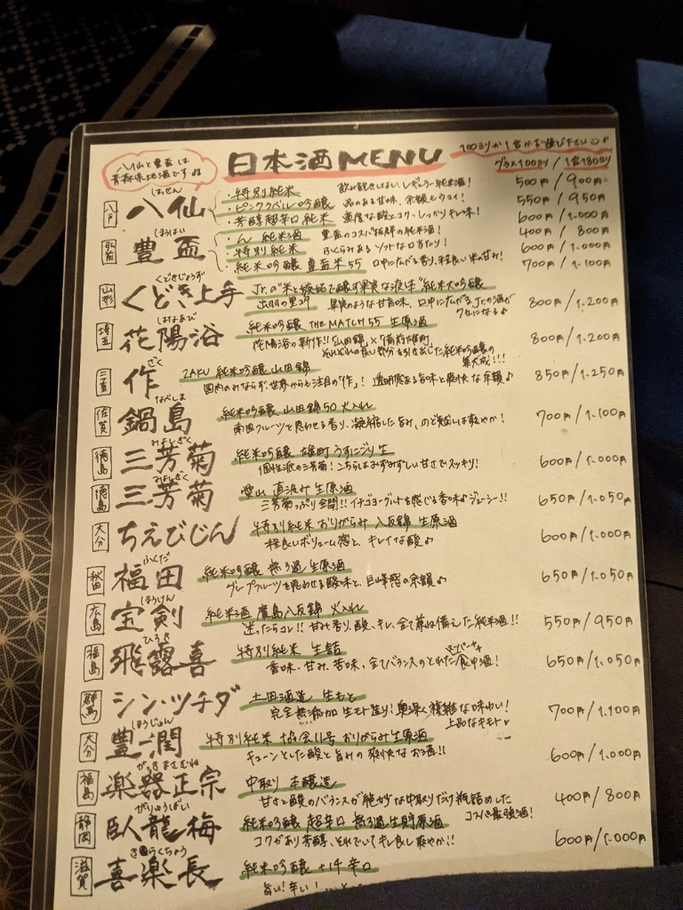 八仙と豊盃は
青森県地酒です
日本酒MENU
100mlか1合かお選び下さい
グラス100ml / 1合180ml
八戸 はっせん 八仙
・特別純米 飲み飽きしない、レギュラー純米酒! 500円/900円
・ピンクラベル吟醸 品のある甘味、余韻もウマイ! 550円/950円
・芳醇超辛口純米 適度な酸とコク・しっかりキレ味! 600円/1.000円
弘前 ほうはい 豊盃
・ん 純米酒 豊盃のコスパ抜群の純米酒! 400円/800円
・特別純米 ふくらみあるソフトな口当たり! 600円/1.000円
・純米吟醸 豊盃米55 口中に広がる香り、程良い米の甘み! 700円/1.100円
山形 くどきじょうず くどき上手
Jr.の"米と酸結で醸す果実な液体"純米大吟醸
出羽の里 800円/1.200円
埼玉 はなあび 花陽浴
純米吟醸 THE MATCH 55 生原酒
花陽浴の新作!!「山田錦」×「備前雄町」 800円/1.200円
それぞれの良い部分を引き出した純米吟醸の
集大成!!!
三重 ざく 作
ZAKU 純米吟醸 山田錦
国内のみならず、世界からも注目の「作」! 透明感ある旨味と爽快な余韻♪ 850円/1.250円
佐賀 なべしま 鍋島
純米吟醸 山田錦50 火入れ
南国フルーツを思わせる香り、凝縮した旨み、のど越しは爽やか! 700円/1.100円
徳島 みよしぎく 三芳菊
純米吟醸 雄町 うすにごり生
個性派の三芳菊!こちらはみずみずしい甘さでスッキリ! 600円/1.000円
徳島 みよしぎく 三芳菊
愛山 直汲み 生原酒
三芳菊っぷり全開!! イチゴヨーグルトを感じる香味♪ジューシー!! 650円/1.050円
大分 ちえびじん
特別純米 おりがらみ 八反錦 生原酒
程良いボリューム感と、キレイな酸♪ 600円/1.000円
ふくだ 福田
純米吟醸 無ろ過 生原酒
グレープフルーツを思わせる酸味と、巨峰感の余韻♪ 650円/1.050円
広島 ほうけん 宝剣
純米酒 廣島八反錦 火入れ
迷ったらコレ!! 甘み・香り、酸、キレ、全て兼ね備えた純米酒!! 550円/950円
福島 ひろき 飛露喜
特別純米 生詰
香味、甘み、苦味、全てバランスのとれた食中酒! 650円/1.050円
群馬 シン・ツチダ
土田酒造 生もと
完全無添加 生モト造り!奥深く複雑な味わい! 700円/1.100円
上品なキモト♪
大分 ほうじゅん 豊潤
特別純米 協会11号 おりがらみ生原酒
キューンとした酸と旨みの爽快なお酒!! 600円/1.000円
福島 がっきまさむね 楽器正宗
中取り 本醸造
甘さと酸のバランスが絶妙な中取りだけ瓶詰めした 400円/800円
コスパ最強酒!
静岡 がりゅうばい 臥龍梅
純米吟醸 超辛口 無ろ過生貯原酒
コクがあり芳醇、それでいてキレ良し爽やか!! 600円/1.000円
滋賀 きらくちょう 喜楽長
純米吟醸 +14 辛口
旨い!辛い!